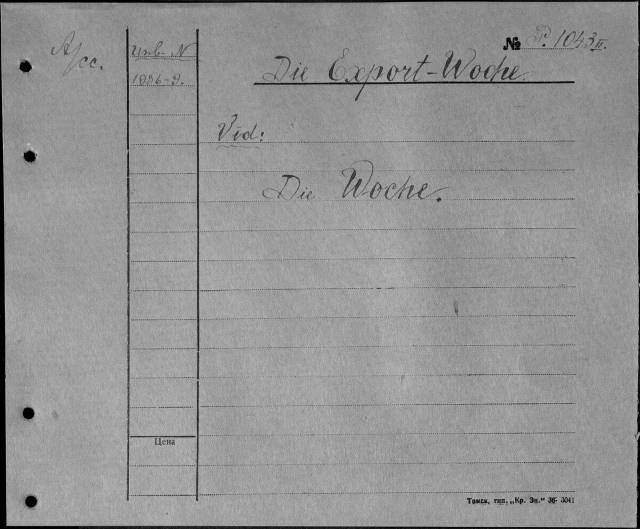 № P. 1043 II.
Инв. N
1896-9.
Die Export-Woche.
Vid:
Die Woche.
Цена
Томск, тип. „Кр. Зн.“ 36- 3041